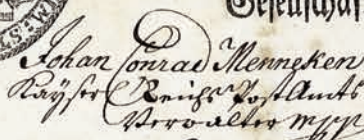 Gesellschaf
Johan Conrad Menneken
Kayser Reichs PostAmts
Verwalter mpp